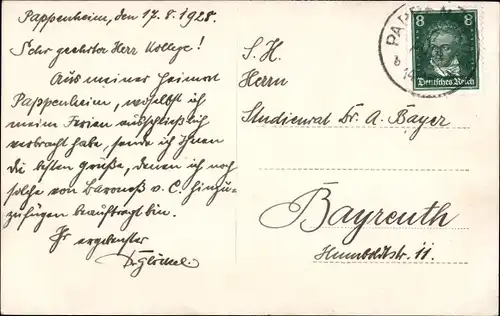 Pappenheim, den 17.8.1928.
Sehr geehrter Herr Kollege!
Aus meiner Heimat
Pappenheim, woselbst ich
meine Ferien ausschließlich
verbracht habe, sende ich Ihnen
die besten Grüße, denen ich noch
solche von Baroneß v. C. hinzu-
zufügen beauftragt bin.
Ihr ergebenster
S. H.
Herrn
Studienrat Dr. A. Bayer
Bayreuth
Humboldtstr. 11
8 8
Deutsches Reich